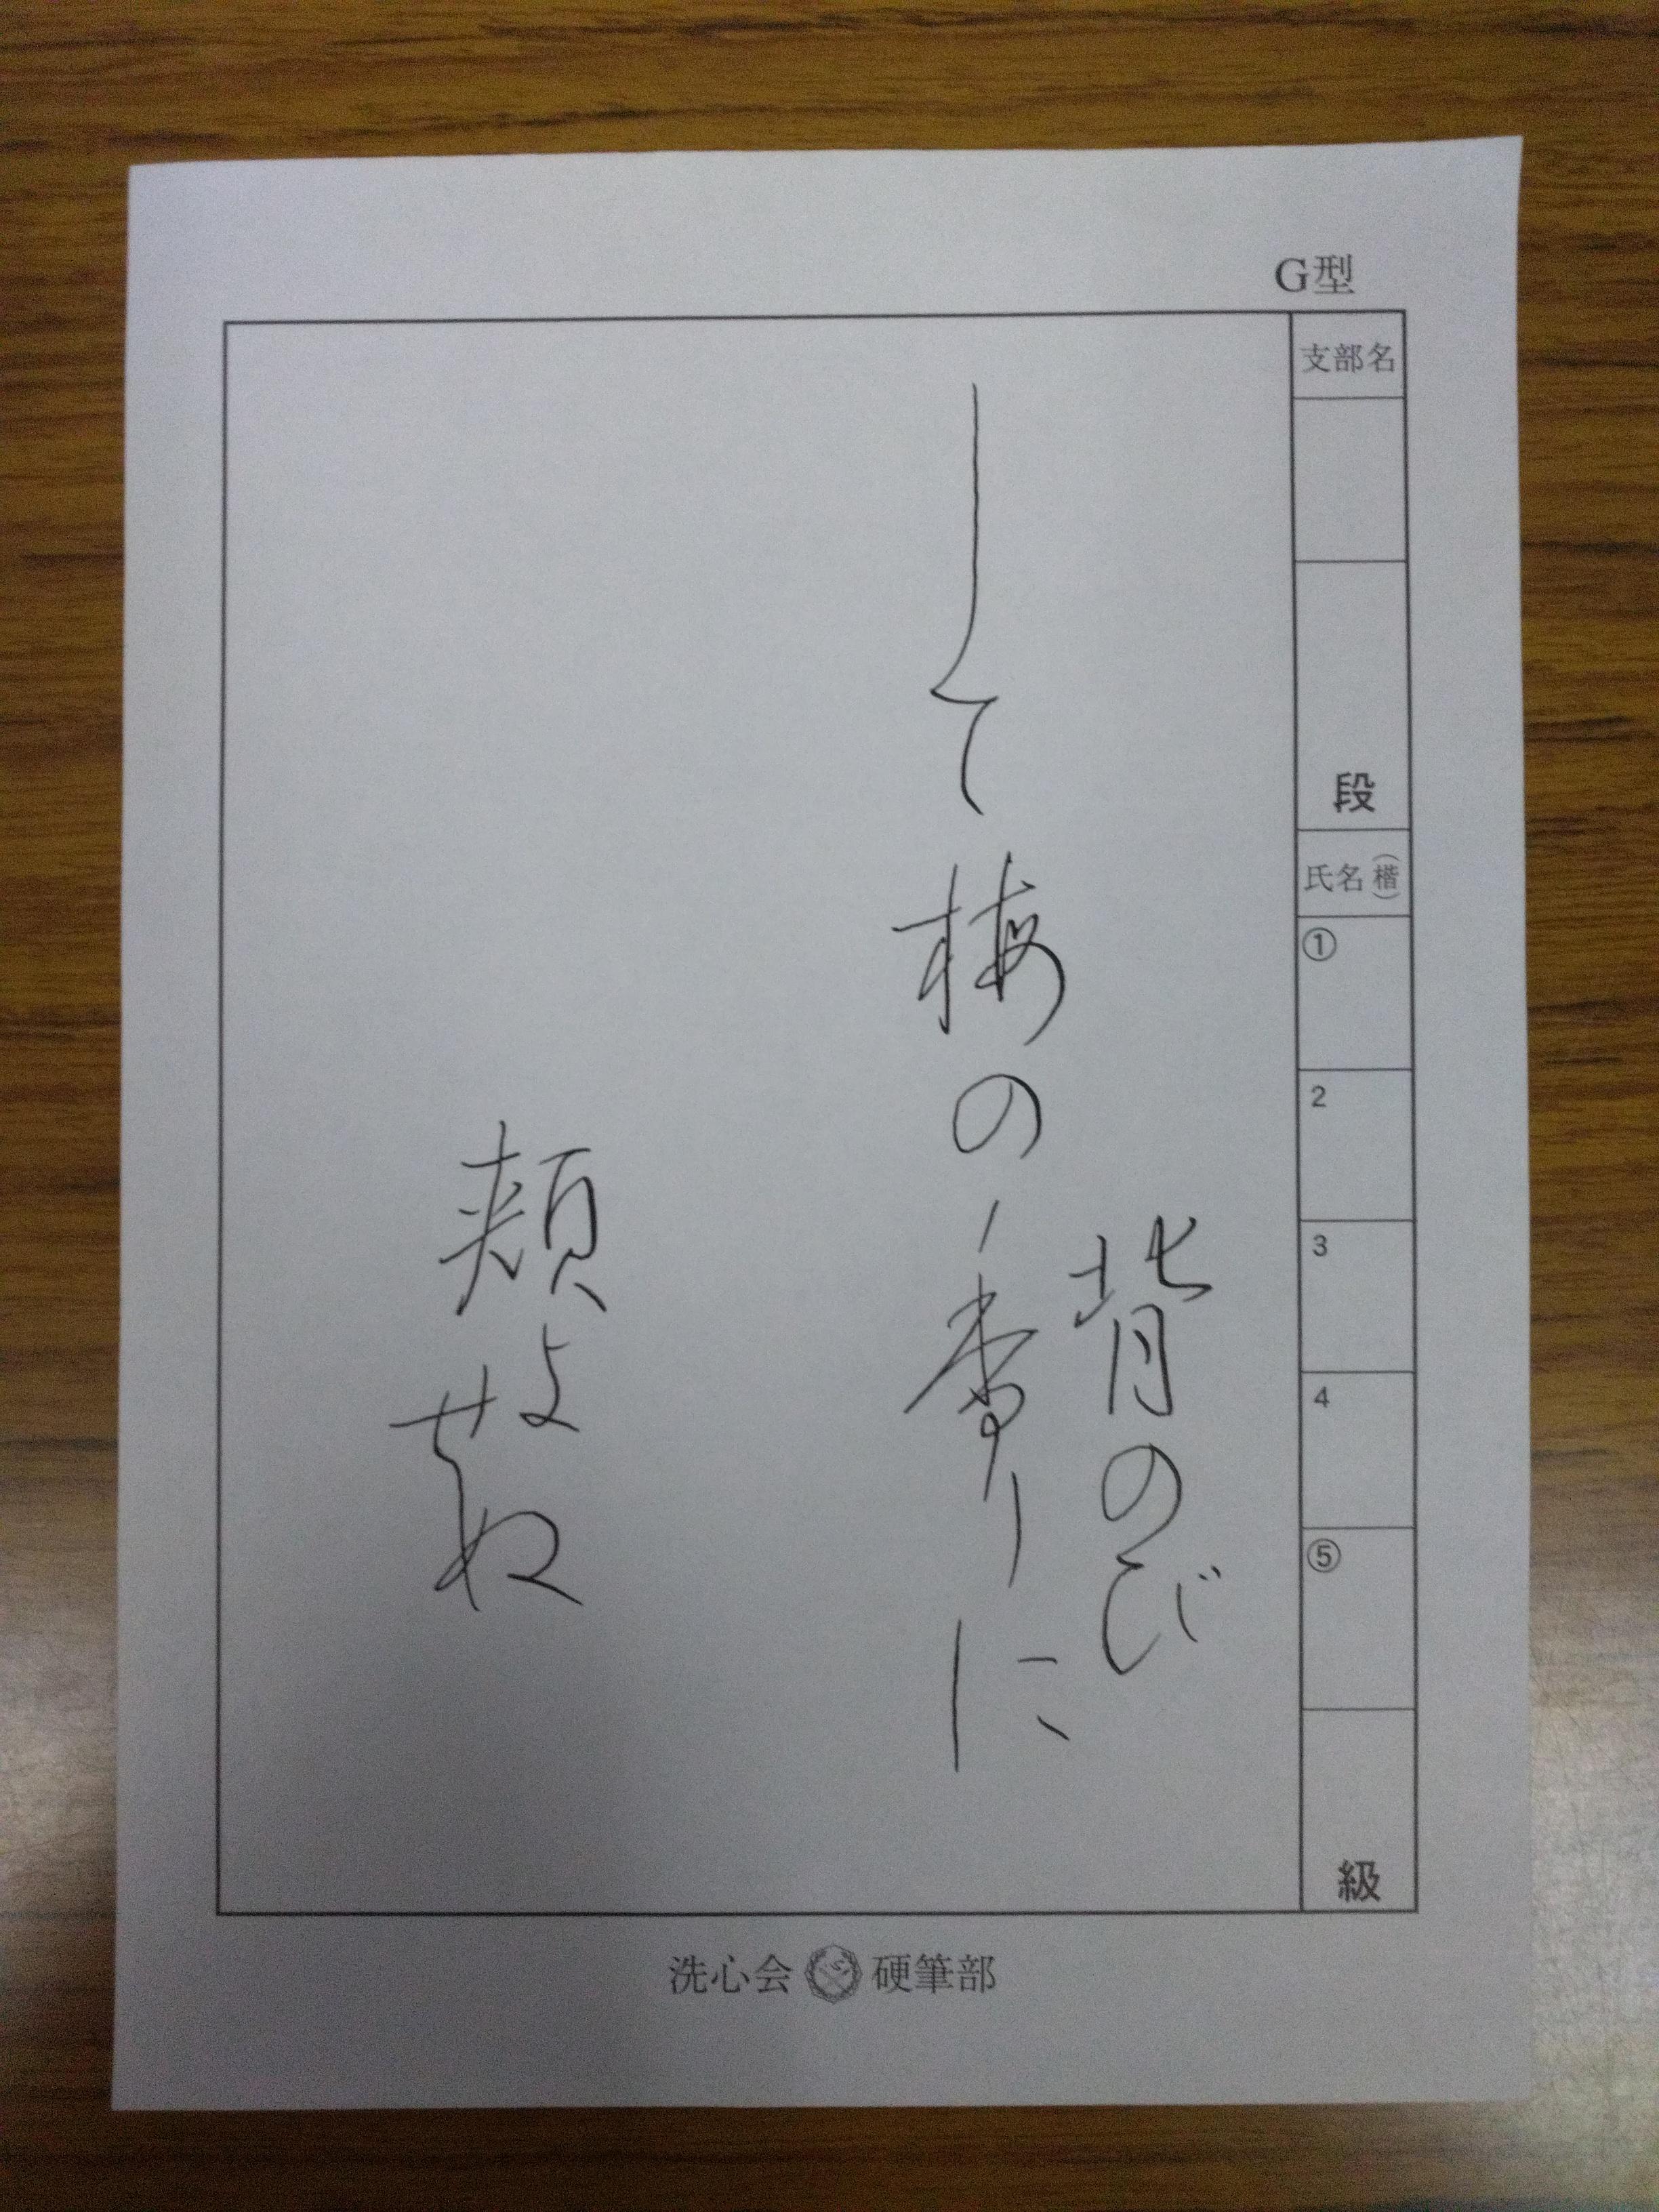 G型
支部名
段
氏名(楷)
①
2
3
4
⑤
級
背のび
して梅の香りに
頬よせぬ
洗心会 硬筆部